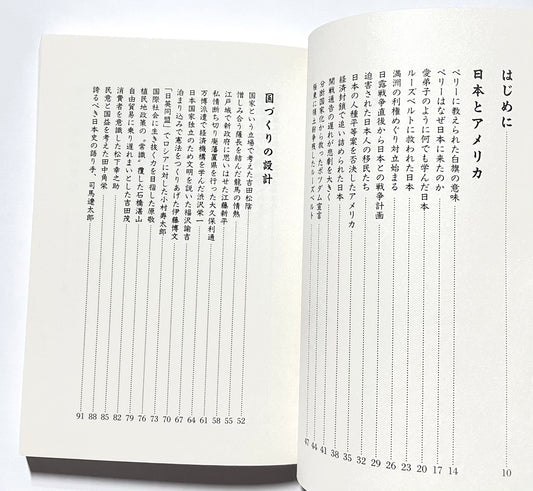 はじめに 10
日本とアメリカ
ペリーに教えられた白旗の意味 14
ペリーはなぜ日本に来たのか 17
愛弟子のように何でも学んだ日本 20
ルーズベルトに救われた日本 23
満洲の利権めぐり対立始まる 26
日露戦争直後から日本との戦争計画 29
迫害された日本人の移民たち 32
日本の人種平等案を否決したアメリカ 35
経済封鎖で追い詰められた日本 38
開戦通告の遅れが悲劇を大きく 41
分断国家化から救ったポツダム宣言 44
47
国づくりの設計
国家という立場で考えた吉田松陰 52
憎しみ合う薩長を結んだ龍馬の情熱 55
江戸城で新政府に思いはせた江藤新平 58
私情断ち切り廃藩置県を行った大久保利通 61
万博派遣で経済機構を学んだ渋沢栄一 64
日本国独立のため文明を説いた福沢諭吉 67
泊まり込みで憲法をつくりあげた伊藤博文 70
「日英同盟」でロシアに対した小村寿太郎 73
国際社会に生き抜く力を目指した原敬 76
植民地政策の〝常識〟覆した石橋湛山 79
自由貿易に乗り遅れまいとした吉田茂 82
消費者を意識した松下幸之助 85
民意と国益を考えた田中角栄 88
誇るべき日本史の語り手、司馬遼太郎 91